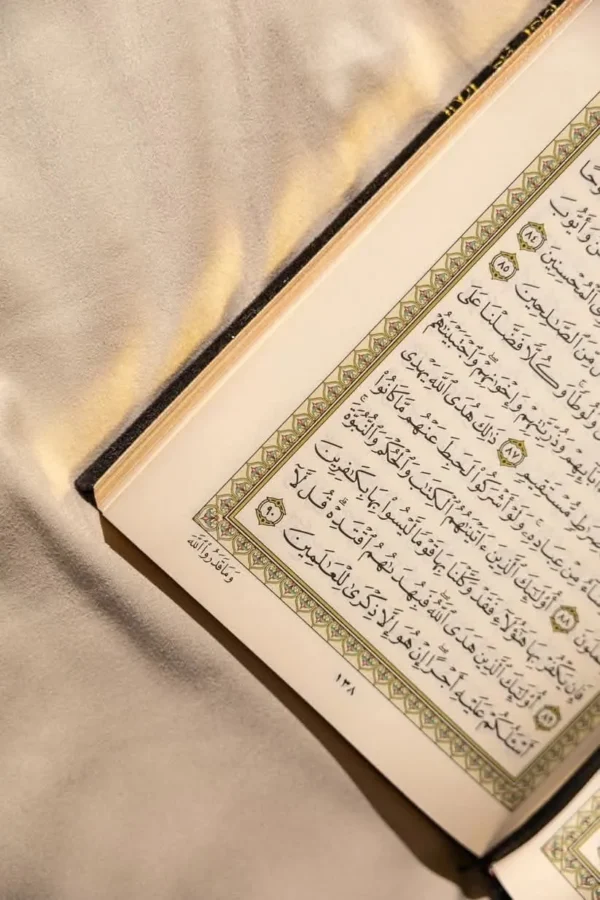 وَأَيُّوبَ
ٱلْمُحْسِنِينَ ٨٤
مِّنَ ٱلصَّٰلِحِينَ ٨٥
وَلُوطًا وَكُلًّا فَضَّلْنَا عَلَى
ءَابَآئِهِمْ وَذُرِّيَّٰتِهِمْ وَإِخْوَٰنِهِمْ وَٱجْتَبَيْنَٰهُمْ
صِرَٰطٍ مُّسْتَقِيمٍ ٨٧ ذَٰلِكَ هُدَى ٱللَّهِ يَهْدِى
مِنْ عِبَادِهِۦ وَلَوْ أَشْرَكُوا۟ لَحَبِطَ عَنْهُم مَّا كَانُوا۟
٨٨ أُو۟لَٰٓئِكَ ٱلَّذِينَ ءَاتَيْنَٰهُمُ ٱلْكِتَٰبَ وَٱلْحُكْمَ وَٱلنُّبُوَّةَ
فَإِن يَكْفُرْ بِهَا هَٰٓؤُلَآءِ فَقَدْ وَكَّلْنَا بِهَا قَوْمًا لَّيْسُوا۟ بِهَا بِكَٰفِرِينَ
٨٩ أُو۟لَٰٓئِكَ ٱلَّذِينَ هَدَى ٱللَّهُ فَبِهُدَىٰهُمُ ٱقْتَدِهْ قُل لَّآ
أَسْـَٔلُكُمْ عَلَيْهِ أَجْرًا إِنْ هُوَ إِلَّا ذِكْرَىٰ لِلْعَٰلَمِينَ ٩٠
وَمَا قَدَرُوا۟ ٱللَّهَ
١٣٨